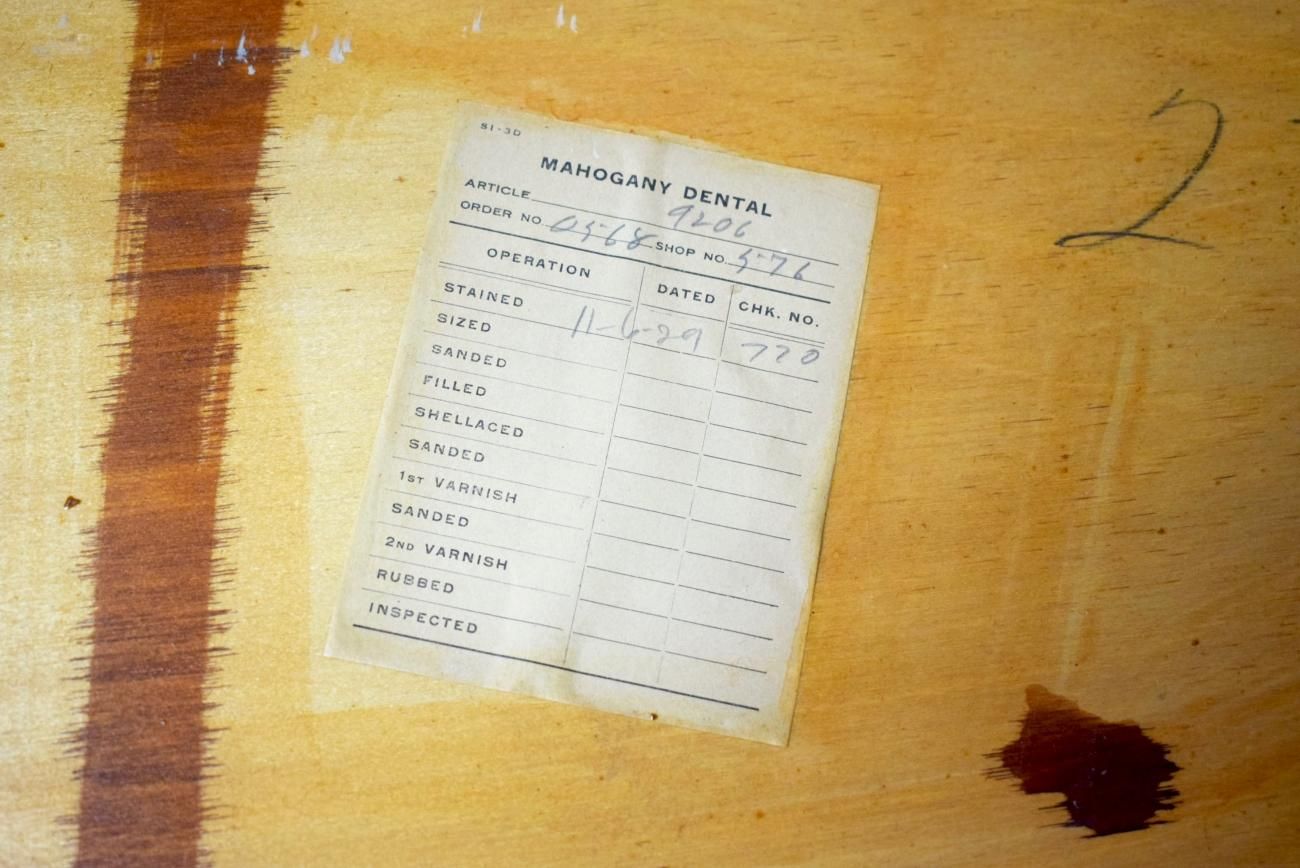 SI-3D
MAHOGANY DENTAL
ARTICLE 9206
ORDER NO. 0568 SHOP NO. 576
OPERATION DATED CHK. NO.
STAINED 11-6-29 770
SIZED
SANDED
FILLED
SHELLACED
SANDED
1ST VARNISH
SANDED
2ND VARNISH
RUBBED
INSPECTED
2